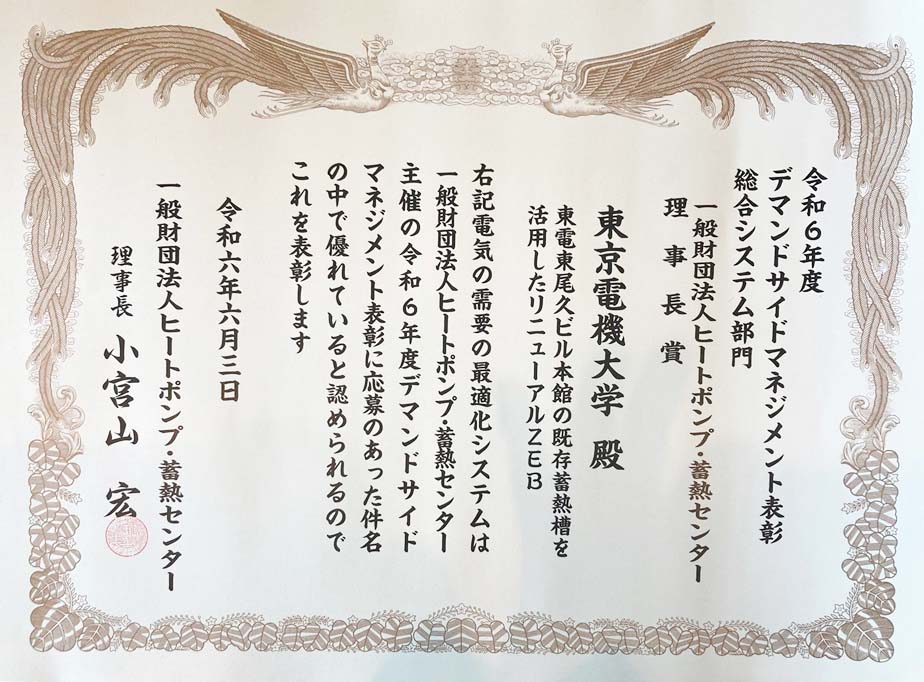 令和６年度
デマンドサイドマネジメント表彰
総合システム部門
一般財団法人ヒートポンプ・蓄熱センター
理事長賞
東京電機大学 殿
東電東尾久ビル本館の既存蓄熱槽を
活用したリニューアルＺＥＢ
右記電気の需要の最適化システムは
一般財団法人ヒートポンプ・蓄熱センター
主催の令和６年度デマンドサイド
マネジメント表彰に応募のあった件名
の中で優れていると認められるので
これを表彰します
令和六年六月三日
一般財団法人ヒートポンプ・蓄熱センター
理事長 小宮山 宏